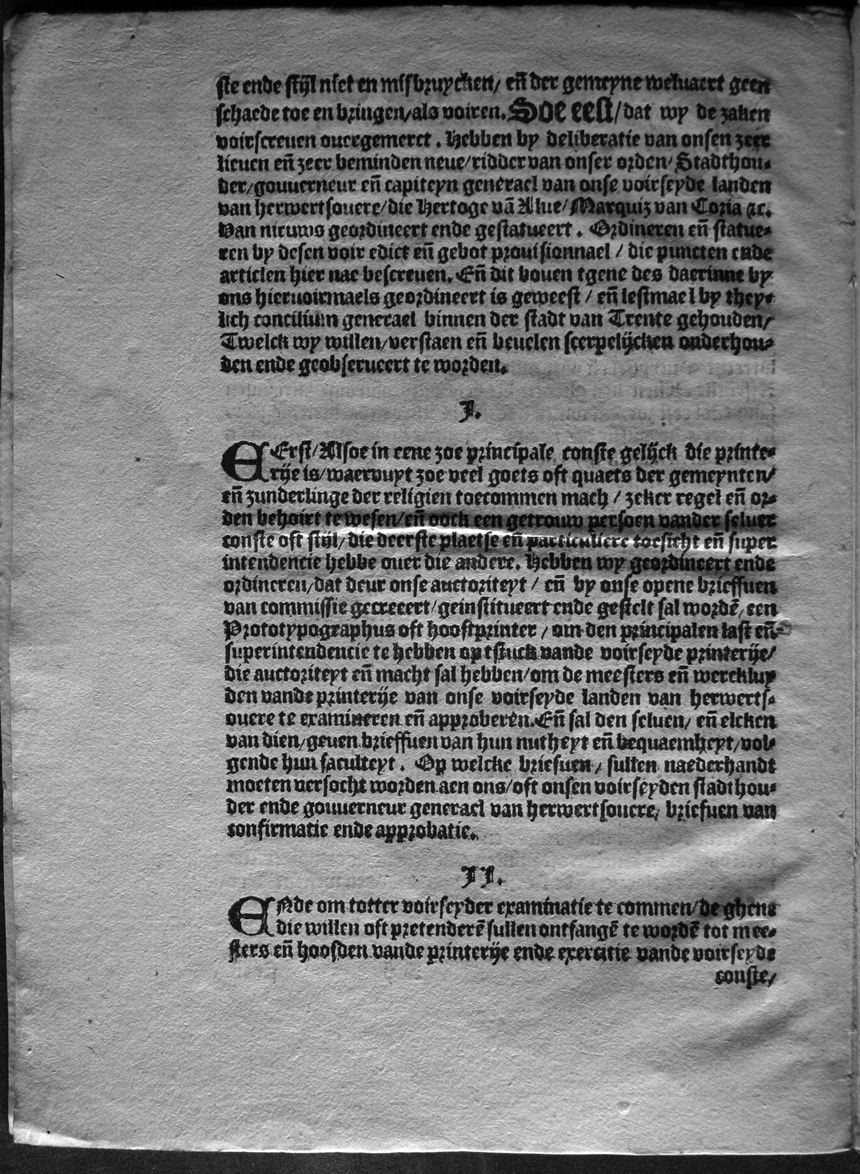 ste ende stijl niet en misbruycken/ eñ der gemeyne weluaert geen
schaede toe en bringen/als voiren. Soe eest/dat wy de zaken
voirscreuen ouergemerct. Hebben by deliberatie van onsen zeer
lieuen eñ zeer beminden neue/ridder van onser orden/Stadthou-
der/gouuerneur eñ capiteyn generael van onse voirseyde landen
van herwertsouere/die Hertoge vã Alue/Marquiz van Coria ꝛc.
Van nieuws geordineert ende gestatueert. Ordineren eñ statue-
ren by desen voir edict eñ gebot prouisionnael / die puncten ende
articlen hier nae bescreuen. Eñ dit bouen tgene des daerinne by
ons hiervoirmaels geordineert is geweest / eñ lestmael by they-
lich concilium generael binnen der stadt van Trente gehouden/
Twelck wy willen/verstaen eñ beuelen scerpelijcken onderhou-
den ende geobserueert te worden.
I.
EErst/Alsoe in eene zoe principale conste gelijck die printe-
rije is/waervuyt zoe veel goets oft quaets der gemeynten/
eñ zunderlinge der religien toecommen mach / zeker regel eñ or-
den behoirt te wesen/eñ oock een getrouw persoen vander seluer
conste oft stijl/die deerste plaetse eñ particuliere toesicht eñ super
intendencie hebbe ouer die andere. Hebben wy geordineert ende
ordineren/dat deur onse auctoriteyt / eñ by onse opene brieffuen
van commissie gecreeert/geinstitueert ende gestelt sal wordẽ, een
Prototypographus oft hooftprinter / om den principalen last eñ
superintendencie te hebben op tstuck vande voirseyde printerije/
die auctoriteyt eñ macht sal hebben/om de meesters eñ werckluy
den vande printerije van onse voirseyde landen van herwerts-
ouere te examineren eñ approberen. Eñ sal den seluen/ eñ elcken
van dien/geuen brieffuen van hun nutheyt eñ bequaemheyt/vol-
gende hun faculteyt. Op welcke briefuen/ sullen naederhandt
moeten versocht worden aen ons/oft onsen voirseyden stadthou-
der ende gouuerneur generael van herwertsouere, briefuen van
confirmatie ende approbatie.
II.
ENde om totter voirseyder examinatie te commen/de ghene
die willen oft pretenderẽ sullen ontfangẽ te wordẽ tot mee-
sters eñ hoofden vande printerije ende exercitie vande voirseyde
conste/